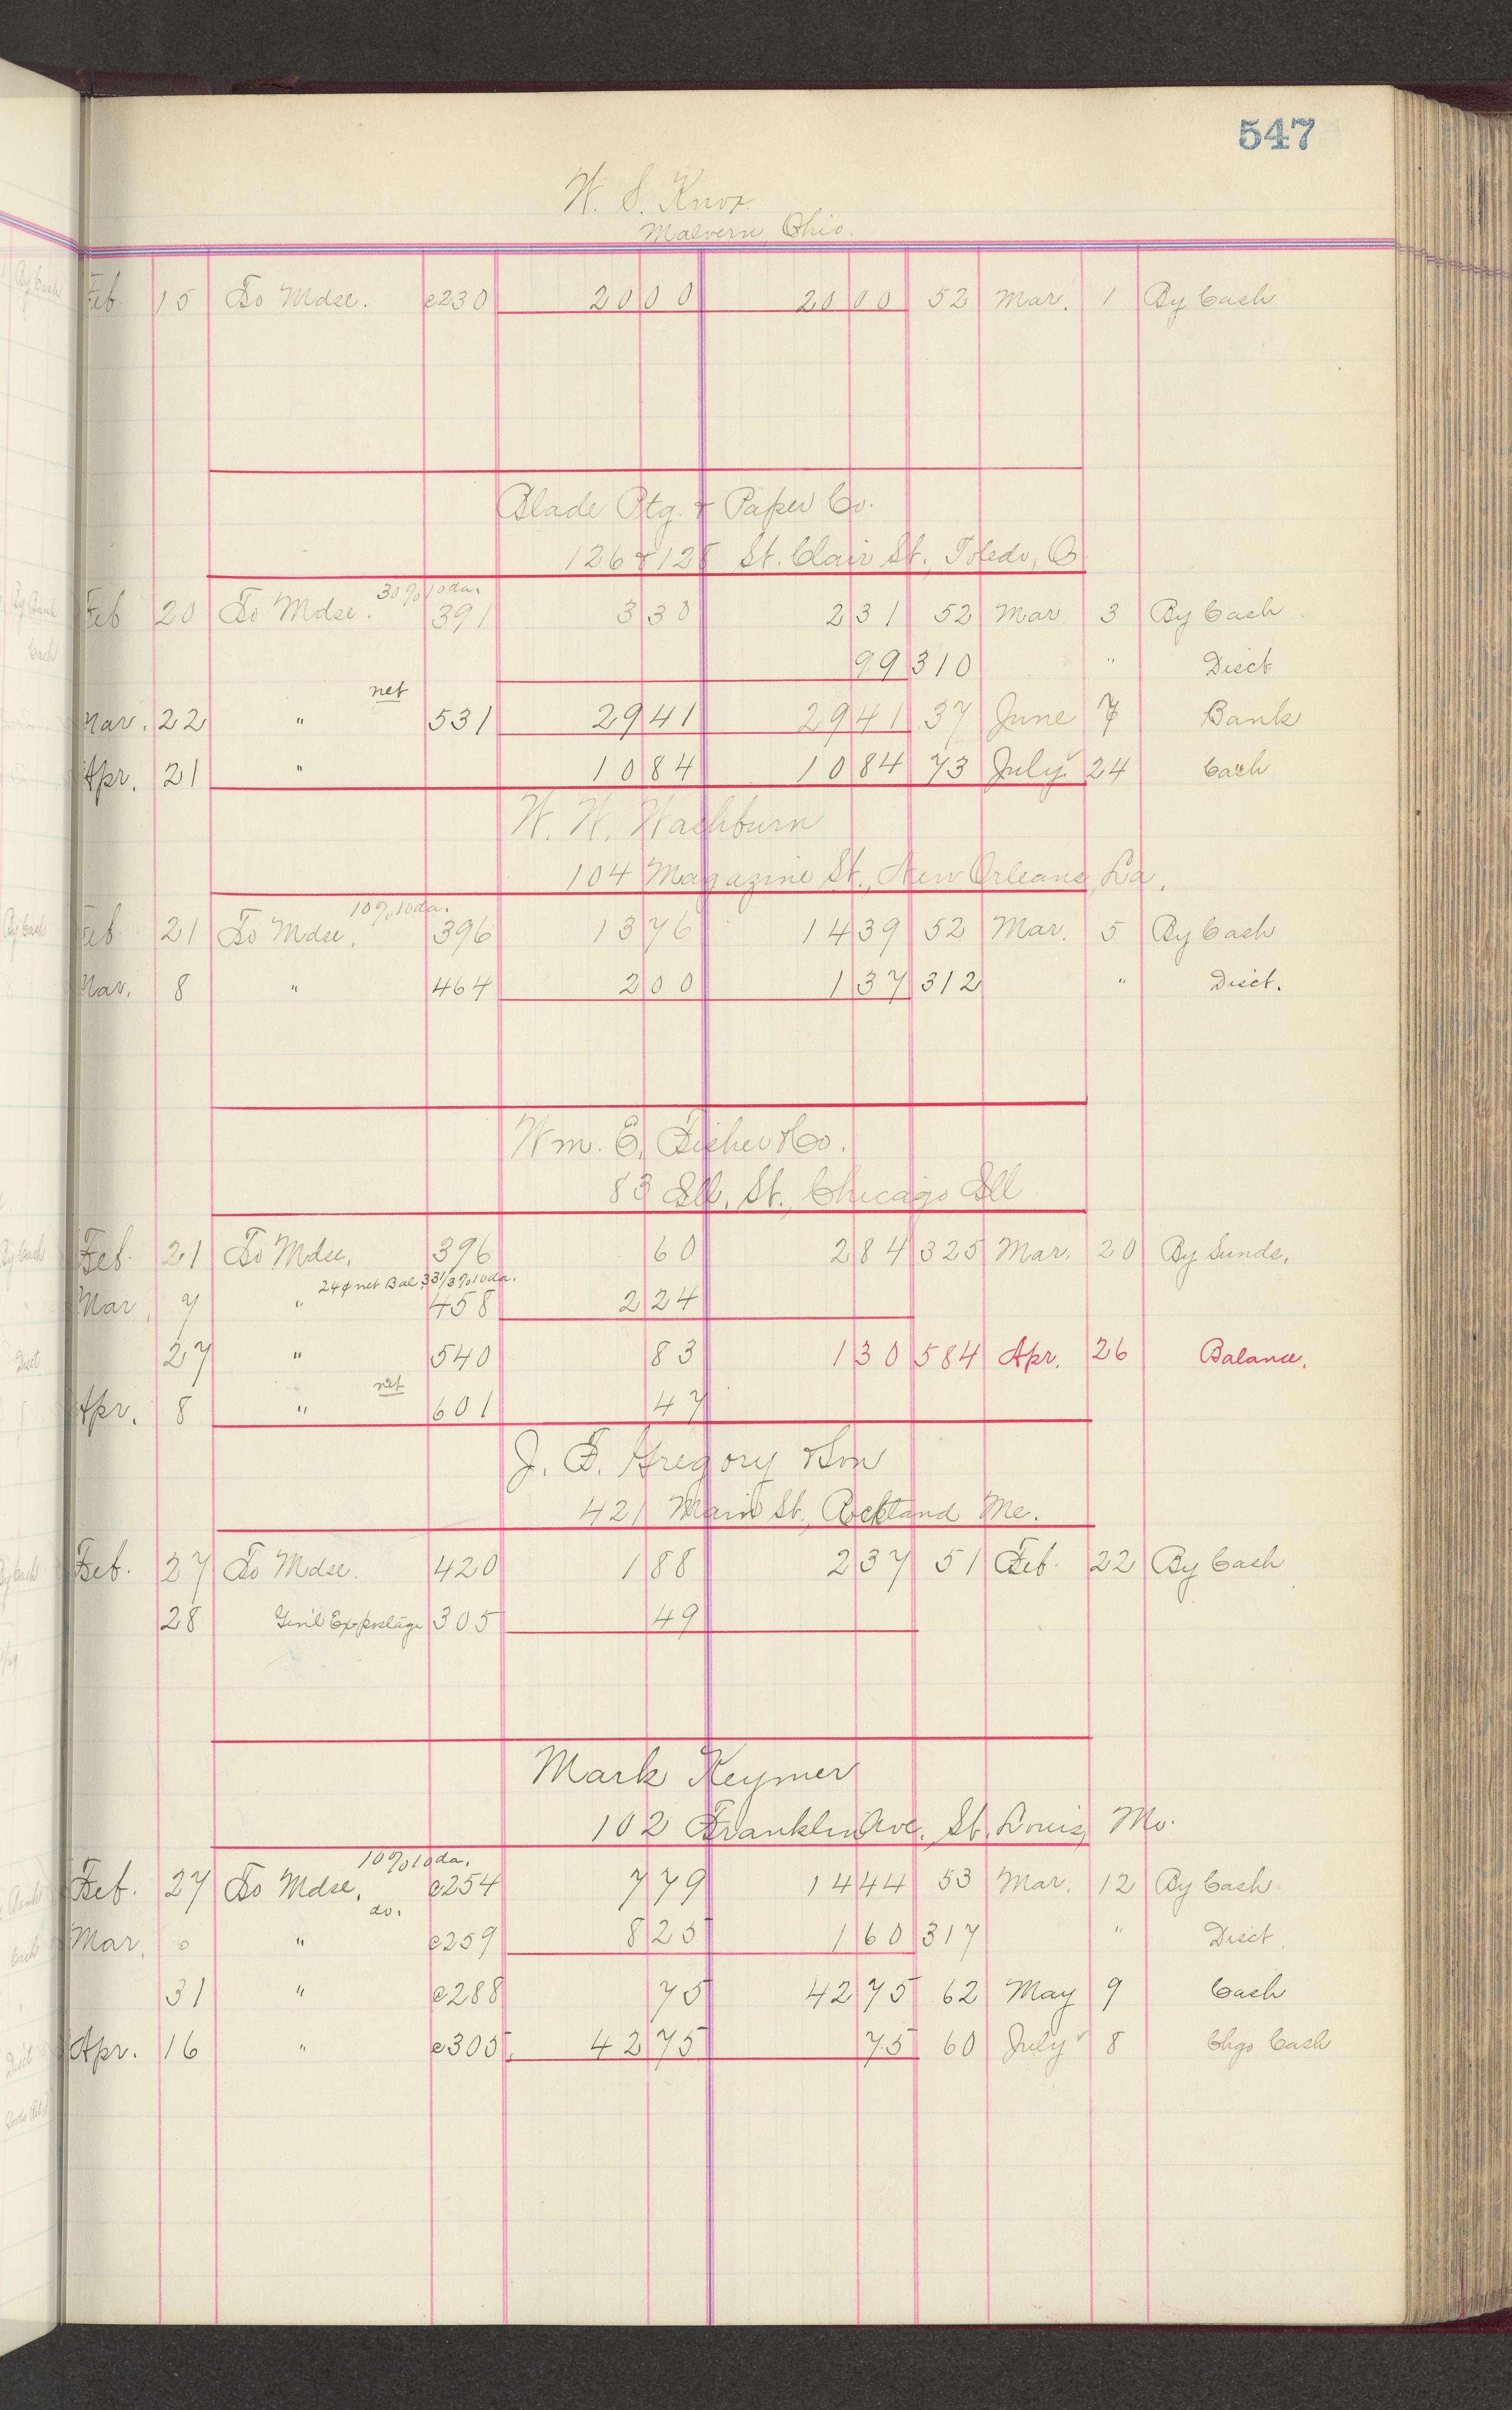 547
W. S. Knox.
Malvern Ohio.
Feb. 15 To Mdse. c230 20 00 20 00 52 Mar. 1 By Cash
Blade Ptg. & Paper Co.
126 & 128 St. Clair St., Toledo, O
30% 10 da.
Feb 20 To Mdse. 391 3 30 2 31 52 Mar 3 By Cash
99 310 " Disct
net
Mar. 22 " 531 29 41 29 41 37 June 7 Bank
Apr. 21 " 10 84 10 84 73 July 24 Cash
W. W. Washburn
104 Magazine St., New Orleans, La.
10% 10 da.
Feb. 21 To Mdse. 396 13 76 14 39 52 Mar. 5 By Cash
Mar. 8 " 464 2 00 1 37 312 " Disct.
Wm. E. Fisher & Co.
83 Ill. St., Chicago Ill
Feb. 21 To Mdse. 396 60 2 84 325 Mar. 20 By Sunds.
24¢ net Bal. 33 1/3% 10 da.
Mar. 7 " 458 2 24
27 " 540 83 1 30 584 Apr. 26 Balance.
net
Apr. 8 " 601 47
J. F. Gregory & Son
421 Main St., Rockland Me.
Feb. 27 To Mdse. 420 1 88 2 37 51 Feb. 22 By Cash
28 Gen'l Ex. postage 305 49
Mark Keymer
102 Franklin Ave. St. Louis, Mo.
10% 10 da.
Feb. 27 To Mdse. c254 7 79 14 44 53 Mar. 12 By Cash
do.
Mar. 6 " c259 8 25 1 60 317 " Disct.
31 " c288 75 42 75 62 May 9 Cash
Apr. 16 " c305 42 75 75 60 July 8 Chgo Cash